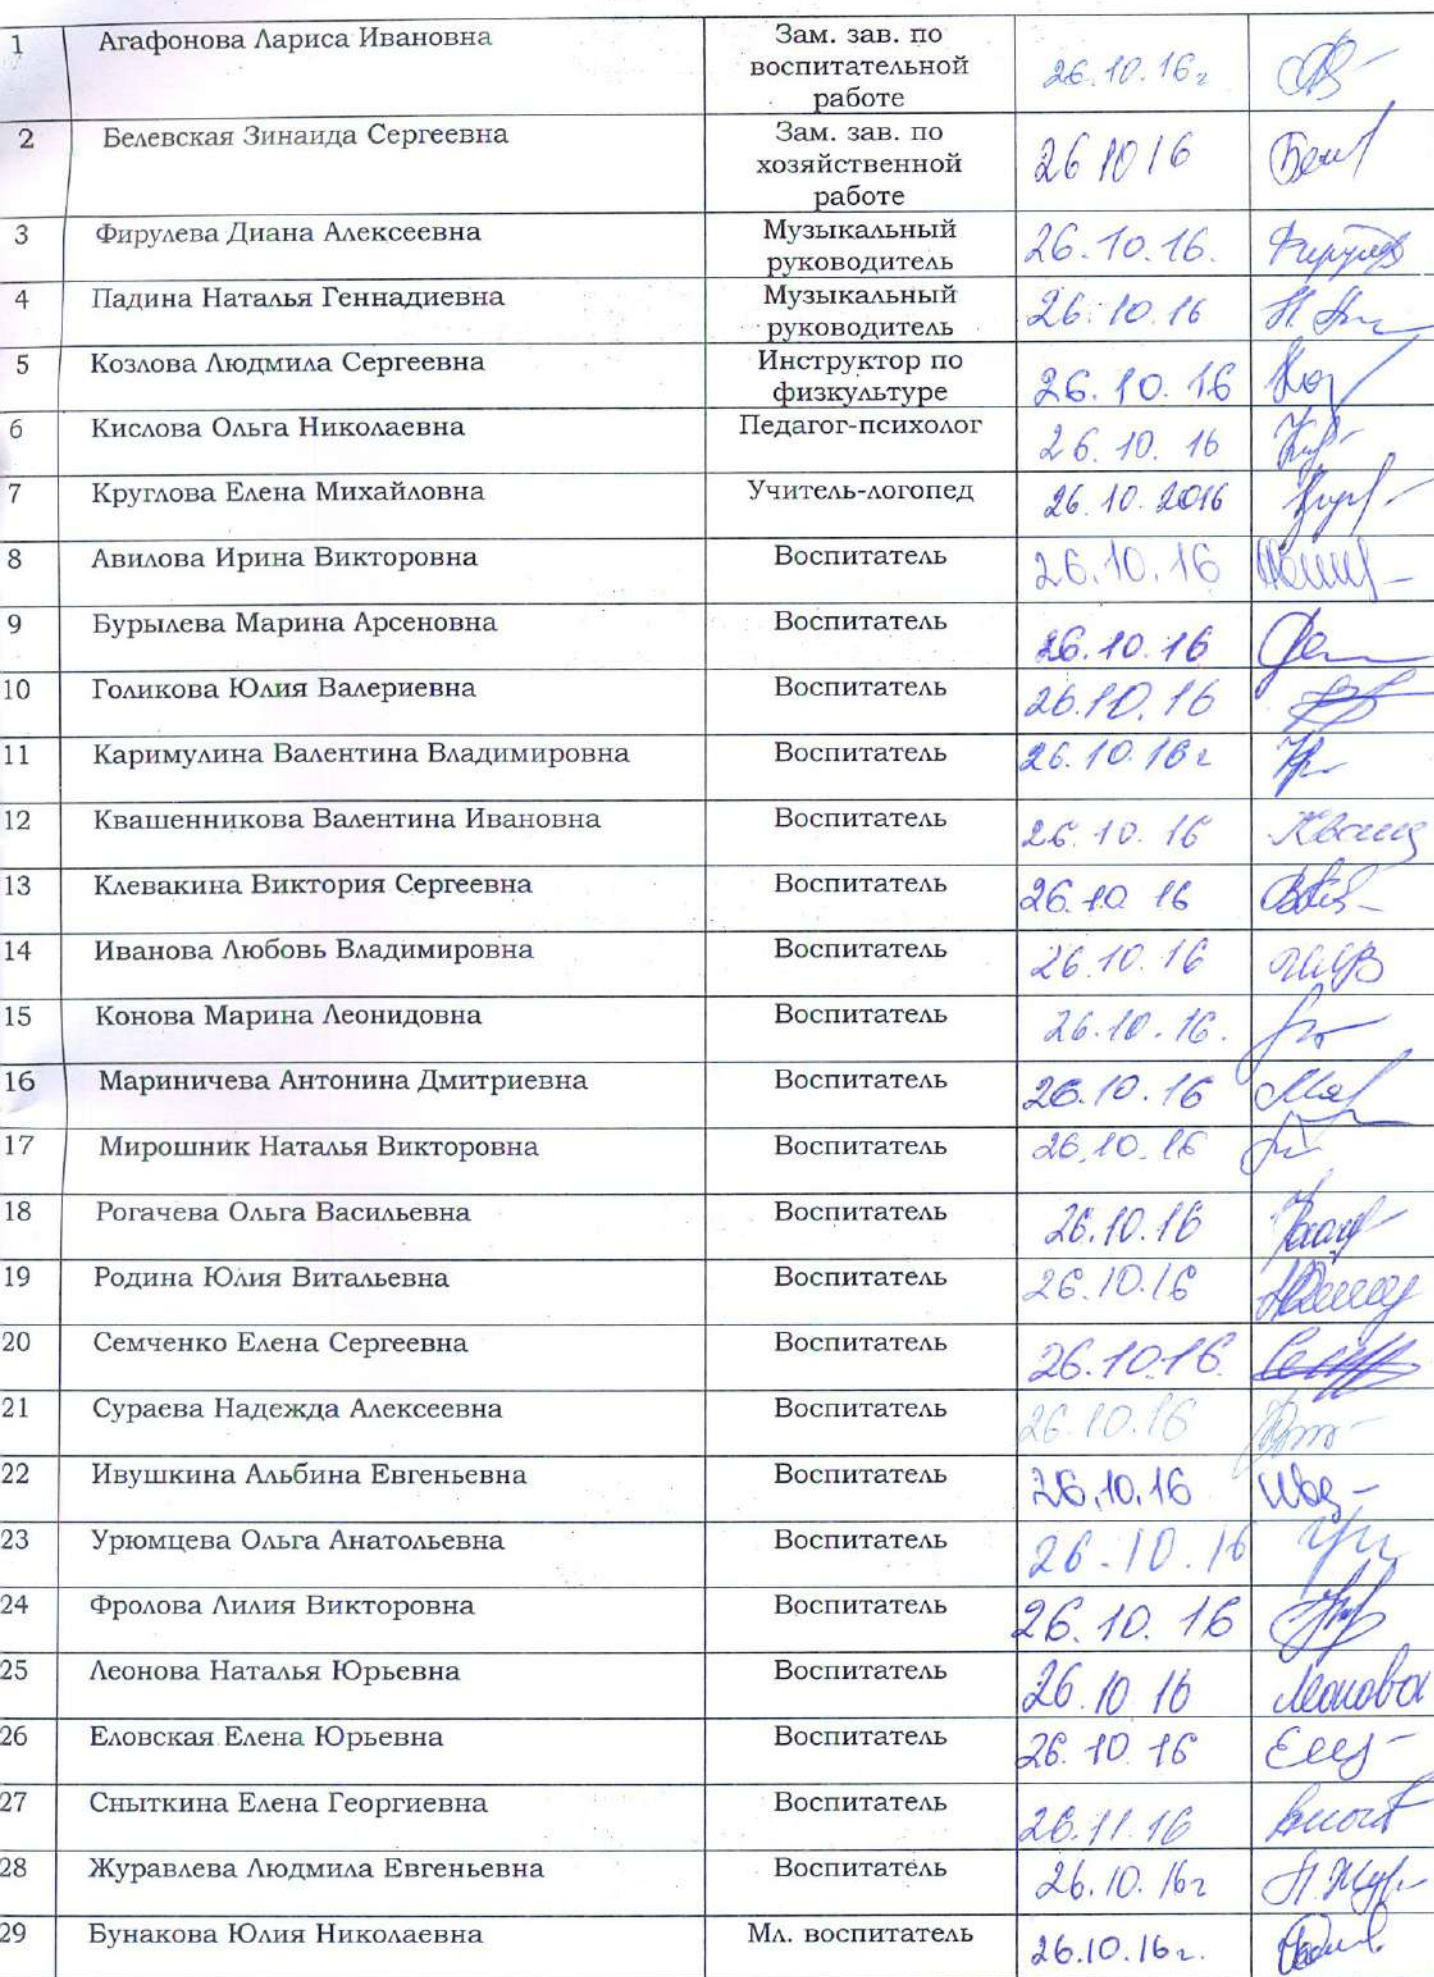 1 Агафонова Лариса Ивановна Зам. зав. по
воспитательной
работе 26.10.16г
2 Белевская Зинаида Сергеевна Зам. зав. по
хозяйственной
работе 26 10 16
3 Фирулева Диана Алексеевна Музыкальный
руководитель 26.10.16.
4 Падина Наталья Геннадиевна Музыкальный
руководитель 26.10.16
5 Козлова Людмила Сергеевна Инструктор по
физкультуре 26.10.16
6 Кислова Ольга Николаевна Педагог-психолог 26.10.16
7 Круглова Елена Михайловна Учитель-логопед 26.10.2016
8 Авилова Ирина Викторовна Воспитатель 26.10.16
9 Бурылева Марина Арсеновна Воспитатель 26.10.16
10 Голикова Юлия Валериевна Воспитатель 26.10.16
11 Каримулина Валентина Владимировна Воспитатель 26.10.16г
12 Квашенникова Валентина Ивановна Воспитатель 26.10.16
13 Клевакина Виктория Сергеевна Воспитатель 26.10 16
14 Иванова Любовь Владимировна Воспитатель 26.10.16
15 Конова Марина Леонидовна Воспитатель 26.10.16.
16 Мариничева Антонина Дмитриевна Воспитатель 26.10.16
17 Мирошник Наталья Викторовна Воспитатель 26.10.16
18 Рогачева Ольга Васильевна Воспитатель 26.10.16
19 Родина Юлия Витальевна Воспитатель 26.10.16
20 Семченко Елена Сергеевна Воспитатель 26.10.16
21 Сураева Надежда Алексеевна Воспитатель 26.10.16
22 Ивушкина Альбина Евгеньевна Воспитатель 26.10.16
23 Урюмцева Ольга Анатольевна Воспитатель 26.10.16
24 Фролова Лилия Викторовна Воспитатель 26.10.16
25 Леонова Наталья Юрьевна Воспитатель 26.10 16 Леонова
26 Еловская Елена Юрьевна Воспитатель 26.10 16
27 Сныткина Елена Георгиевна Воспитатель 26.11.16
28 Журавлева Людмила Евгеньевна Воспитатель 26.10.16г
29 Бунакова Юлия Николаевна Мл. воспитатель 26.10.16г.